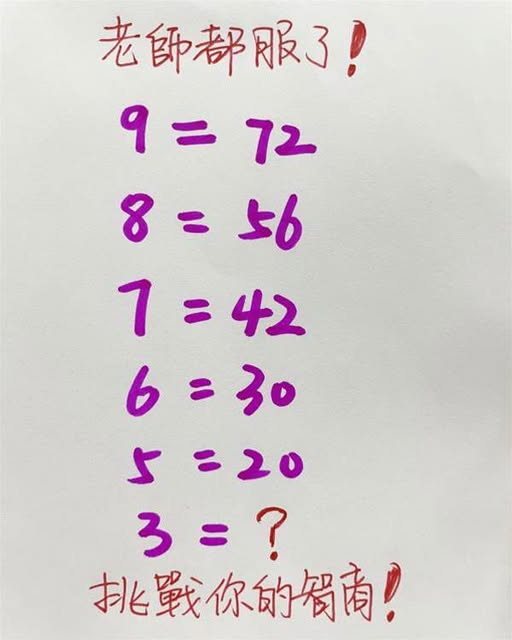 老師都服了!
9 = 72
8 = 56
7 = 42
6 = 30
5 = 20
3 = ?
挑戰你的智商!